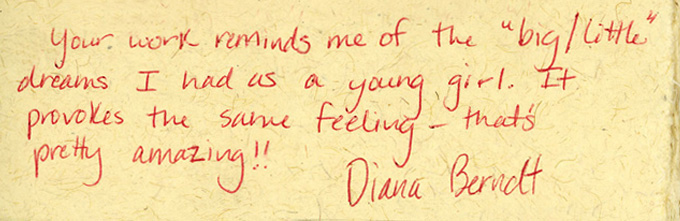 Your work reminds me of the "big/little"
dreams I had as a young girl. It
provokes the same feeling - that's
pretty amazing!!
Diana Berndt